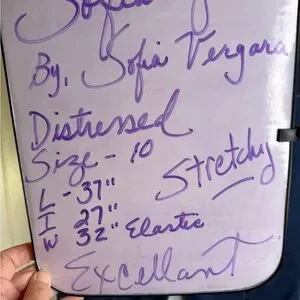 Sofia
By, Sofia Vergara
Distressed
Size - 10
Stretchy
L - 37"
I 27"
W 32" Elastic
Excellant